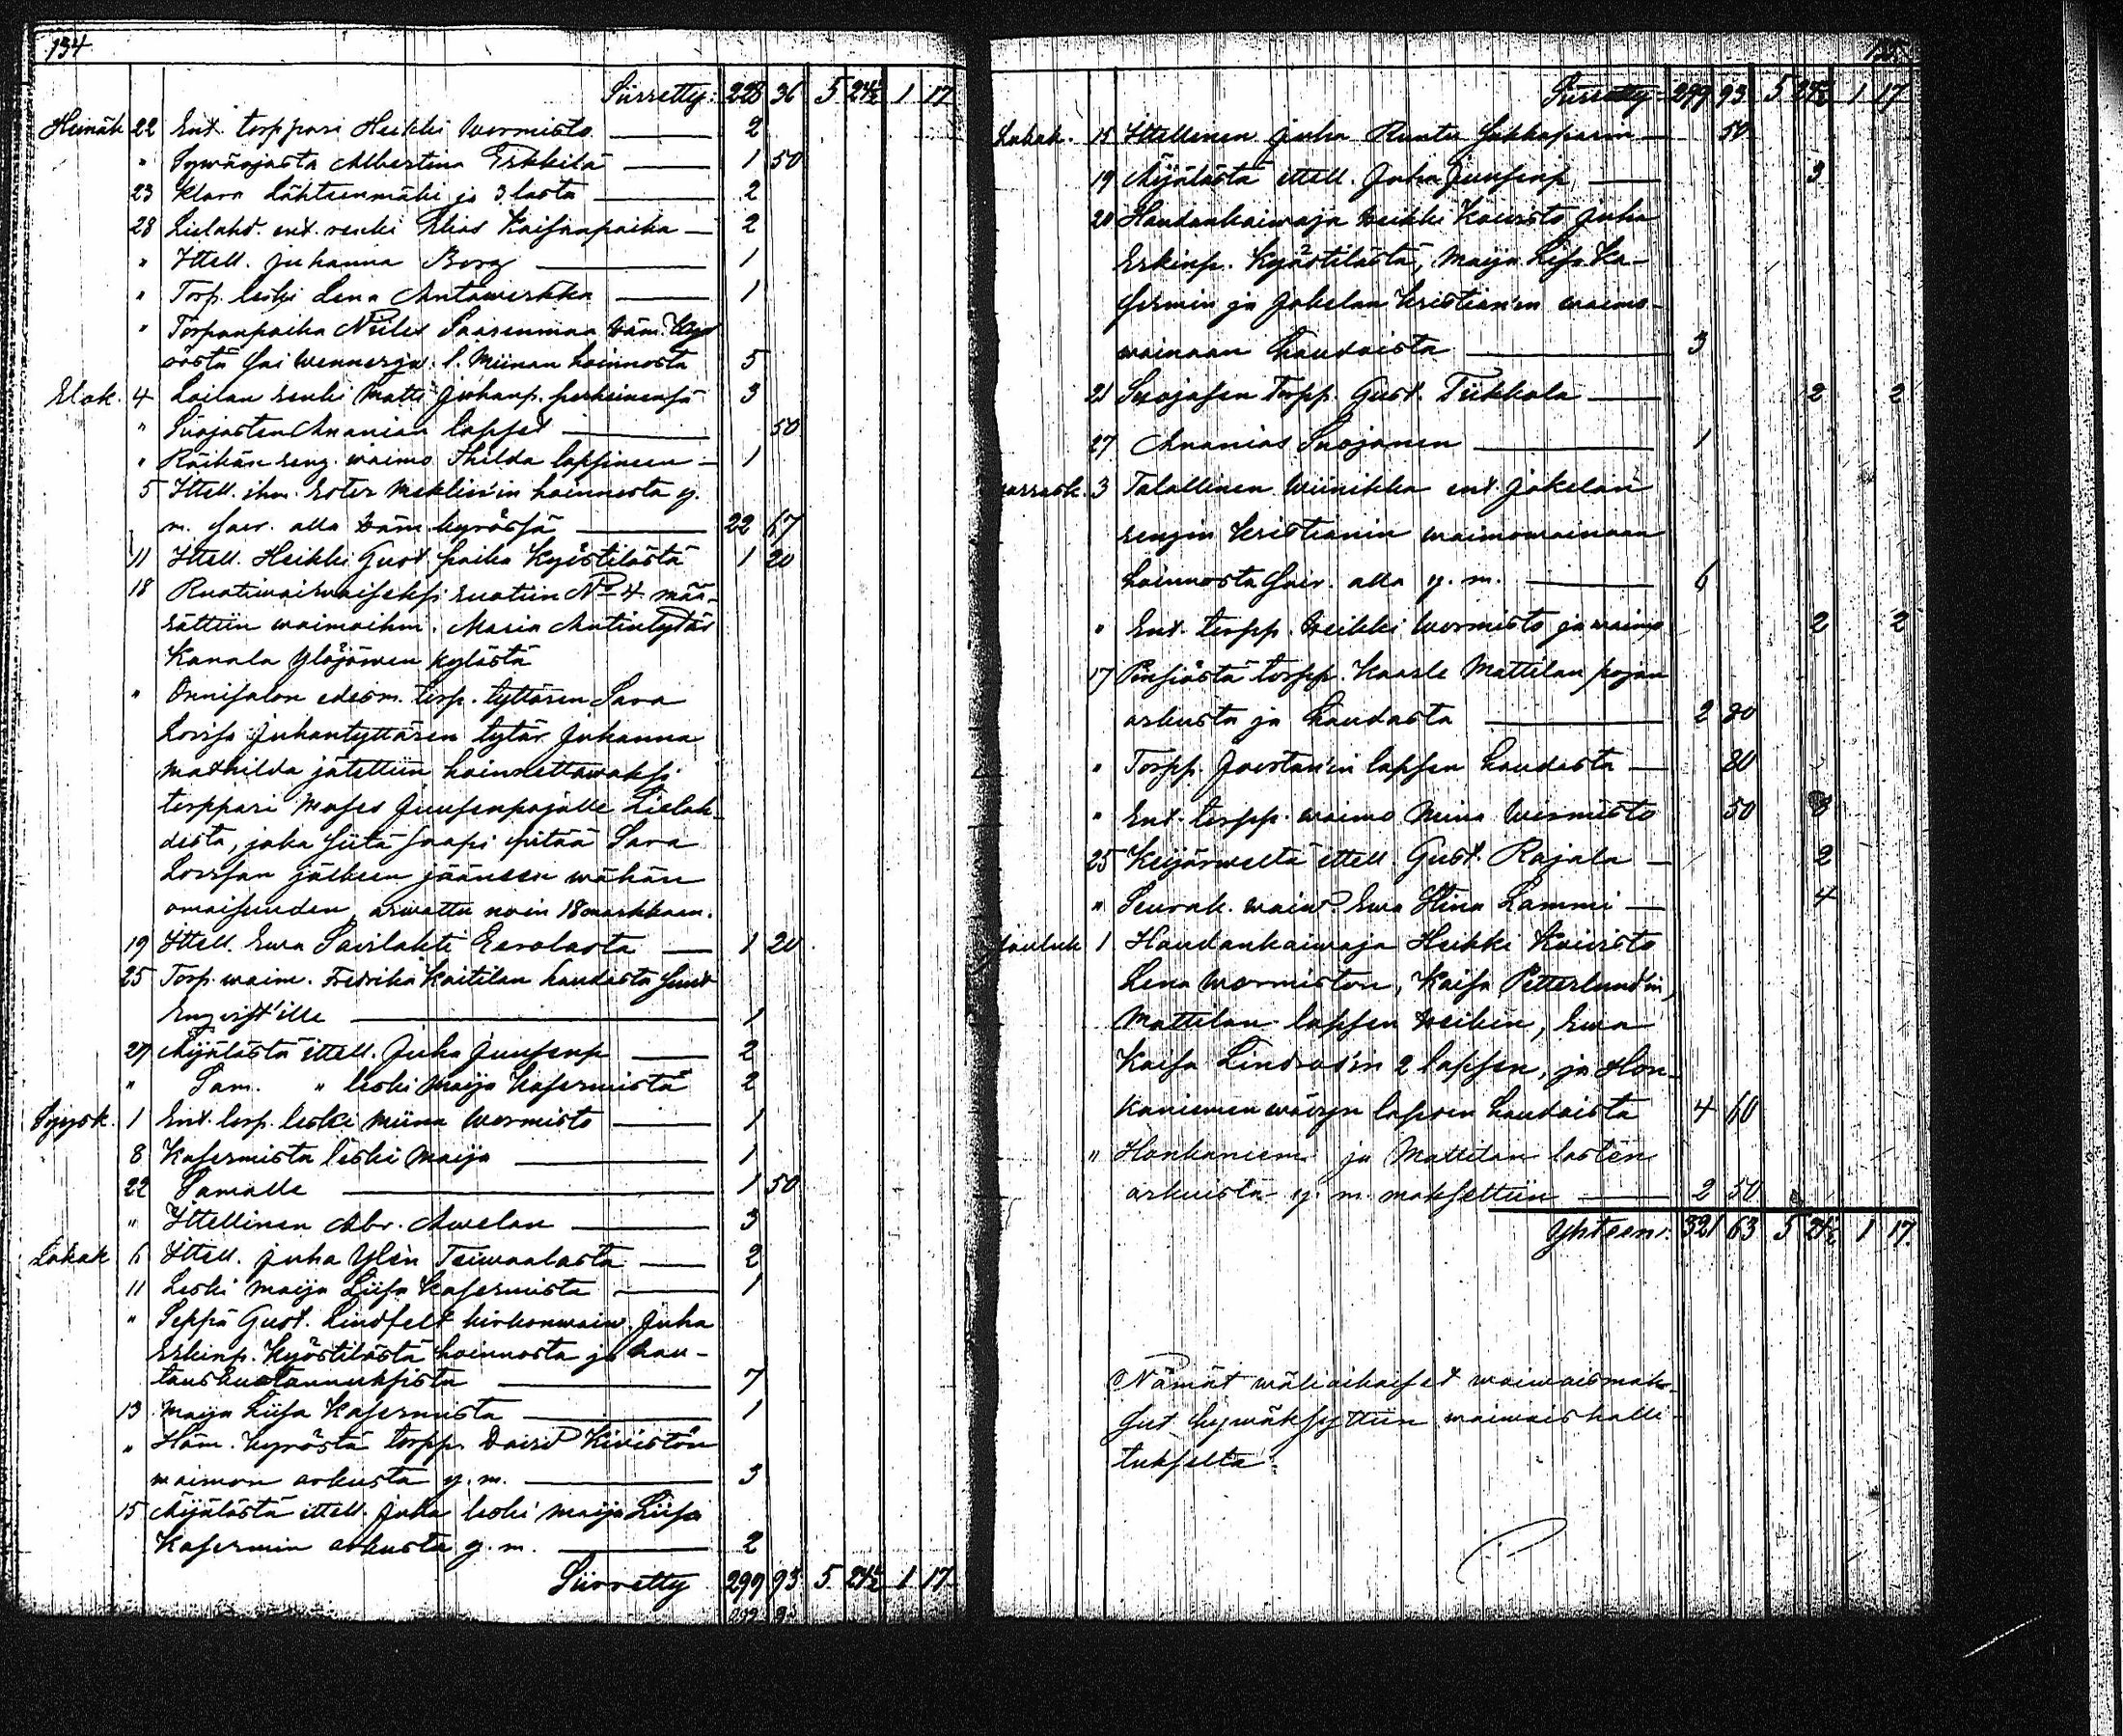 134
Siirretty: 228 36 5 24½ 1 17
Heinäk 22 Ent. torppari Heikki Wormisto 2
" Sywäojasta Albertina Erkkilä 1 50
23 Klara Lähteenmäki ja 3 lasta 2
28 Lielahd. ent. renki Elias Kaisanpoika 2
" Ittell. Juhanna Borg 1
" Torp. leski Lena Antawerkka 1
" Torpanpoika Niiles Saarenmaa Häm. Kyr
östä sai Wennerjw. l. Miinan hoinnosta 5
Elok. 4 Loilan renki Matti Juhanp. perheinensä 3
" Suojasten Ananian lapset 50
" Räikän reng. waimo Thilda lapsineen 1
5 Ittell. ihm. Ester Meklin'in hoinnosta y.
m. sair. alla Häm. kyrössä 22 67
11 Ittell. Heikki Gust. poika Kyöstilästä 1 20
18 Ruotiwaiwaiseksi ruotiin No 4 mää-
rättiin waimoihm. Maria Antintytär
Kanala Ylöjärwen kylästä
" Onnisalon edesm. torp. tyttären Sara
Lovisa Juhantyttären tytär Juhanna
Mathilda jätettiin hoinnettawaksi
torppari Moses Juusenpojalle Lielah-
desta, joka siitä saapi pitää Sara
Lovisan jälkeen jääneen wähän
omaisuuden, arwattu noin 18 markkaan.
19 Ittell. Ewa Savilahti Eerolasta 1 20
25 Torp. waim. Fredrika Kaitilan haudasta Gust
Engvist'ille 1
27 Äijälästä ittell. Juha Juusenp 2
" Sam. " leski Maija Kasermista 2
Syysk. 1 Ent. torp. leski Miina Wormisto 1
8 Kasermista leski Maija 1
22 Samalle 1 50
" Ittellinen Abr. Awelan 3
Lokak 6 Ittell. Juha Ylén Teiwaalasta 2
11 Leski Maija Liisa Kasermista 1
" Seppä Gust. Lindfelt kirkonwaiw. Juha
Erkinp. Kyöstilästä hoinnosta ja hau-
tauskustannuksista 7
13 Maija Liisa Kasermista 1
" Häm. kyröstä torpp. David Kiviston
waimon arkusta y. m. 3
15 Äijälästä ittell. Juha leski Maija Liisa
Kasermin arkusta y. m. 2
Siirretty 299 93 5 24½ 1 17
135.
Siirretty 299 93 5 24½ 1 17
Lokak. 15 Ittellinen Juha Runtu 50
19 Äijälästä ittell. Juha Juusenp 3
20 Haudankaiwaja Heikki Koiwisto Juha
Erkinp. Kyöstilästä, Maija Lisa Ka-
sermin ja Jokelan Kristian'in waimo-
wainaan haudoista 3
21 Suojasen torpp. Gust. Tiikkala 2 2
27 Ananias Suojanen 1
marrask. 3 Talollinen Wiinikka ent. Jokelan
rengin Kristianin waimowainaan
hoinnosta sair. alla y. m. 6
" Ent. torpp. Heikki Wormisto ja waimo 2 2
17 Pinsiöstä torpp. Kaarle Mattilan pojan
arkusta ja haudasta 2 80
" Torpp. Joostan'in lapsen haudasta 80
" Ent. torpp. waimo Miina Wormisto 50 3
25 Keijärweltä ittell. Gust. Rajala 2
" Seurak. waiw. Ewa Stina Lammi 4
Jouluk 1 Haudankaiwaja Heikki Koiwisto
Lena Wormiston, Kaisa Petterlund'in,
Mattilan lapsen Heikin, Ewa
Kaisa Lindroos'in 2 lapsen, ja Hon-
kaniemen wäwyn lapsen haudoista 4 60
" Honkaniem. ja Mattilan lasten
arkuista y. m. maksettiin 2 50
Yhteens. 321 63 5 24½ 1 17.
Nämät wäliaikaiset waiwaismak-
sut hywäksyttiin waiwaishalli-
tukselta.